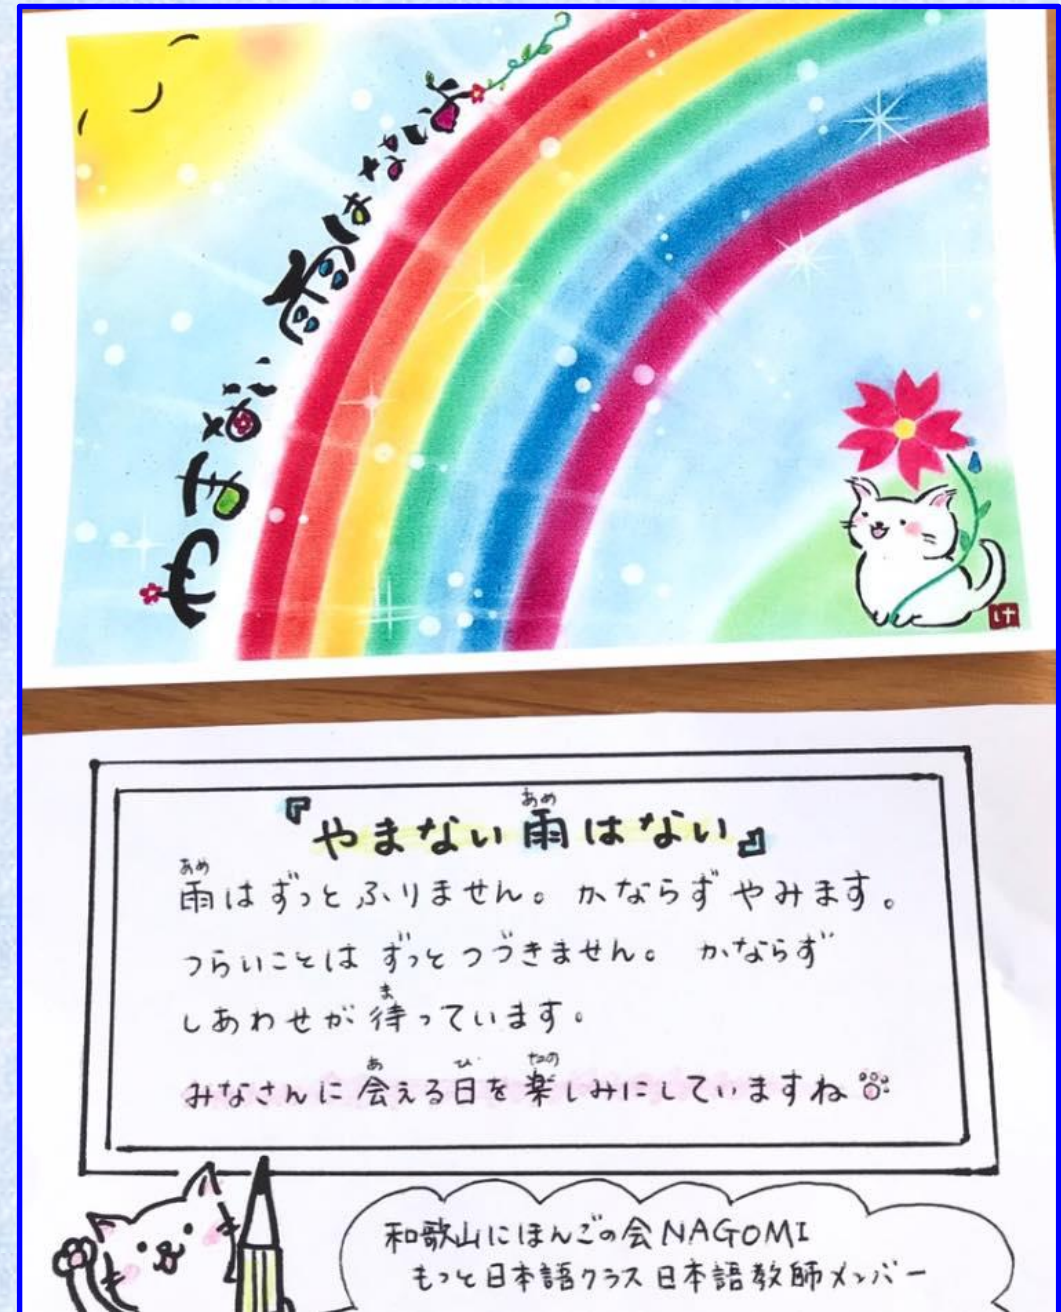 やまない雨はないよ
け
『やまない雨はない』
あめ
雨はずっとふりません。かならずやみます。
あめ
つらいことはずっとつづきません。かならず
しあわせが待っています。
ま
みなさんに会える日を楽しみにしていますね
あ び たの
和歌山にほんごの会NAGOMI
もっと日本語クラス日本語教師メンバー